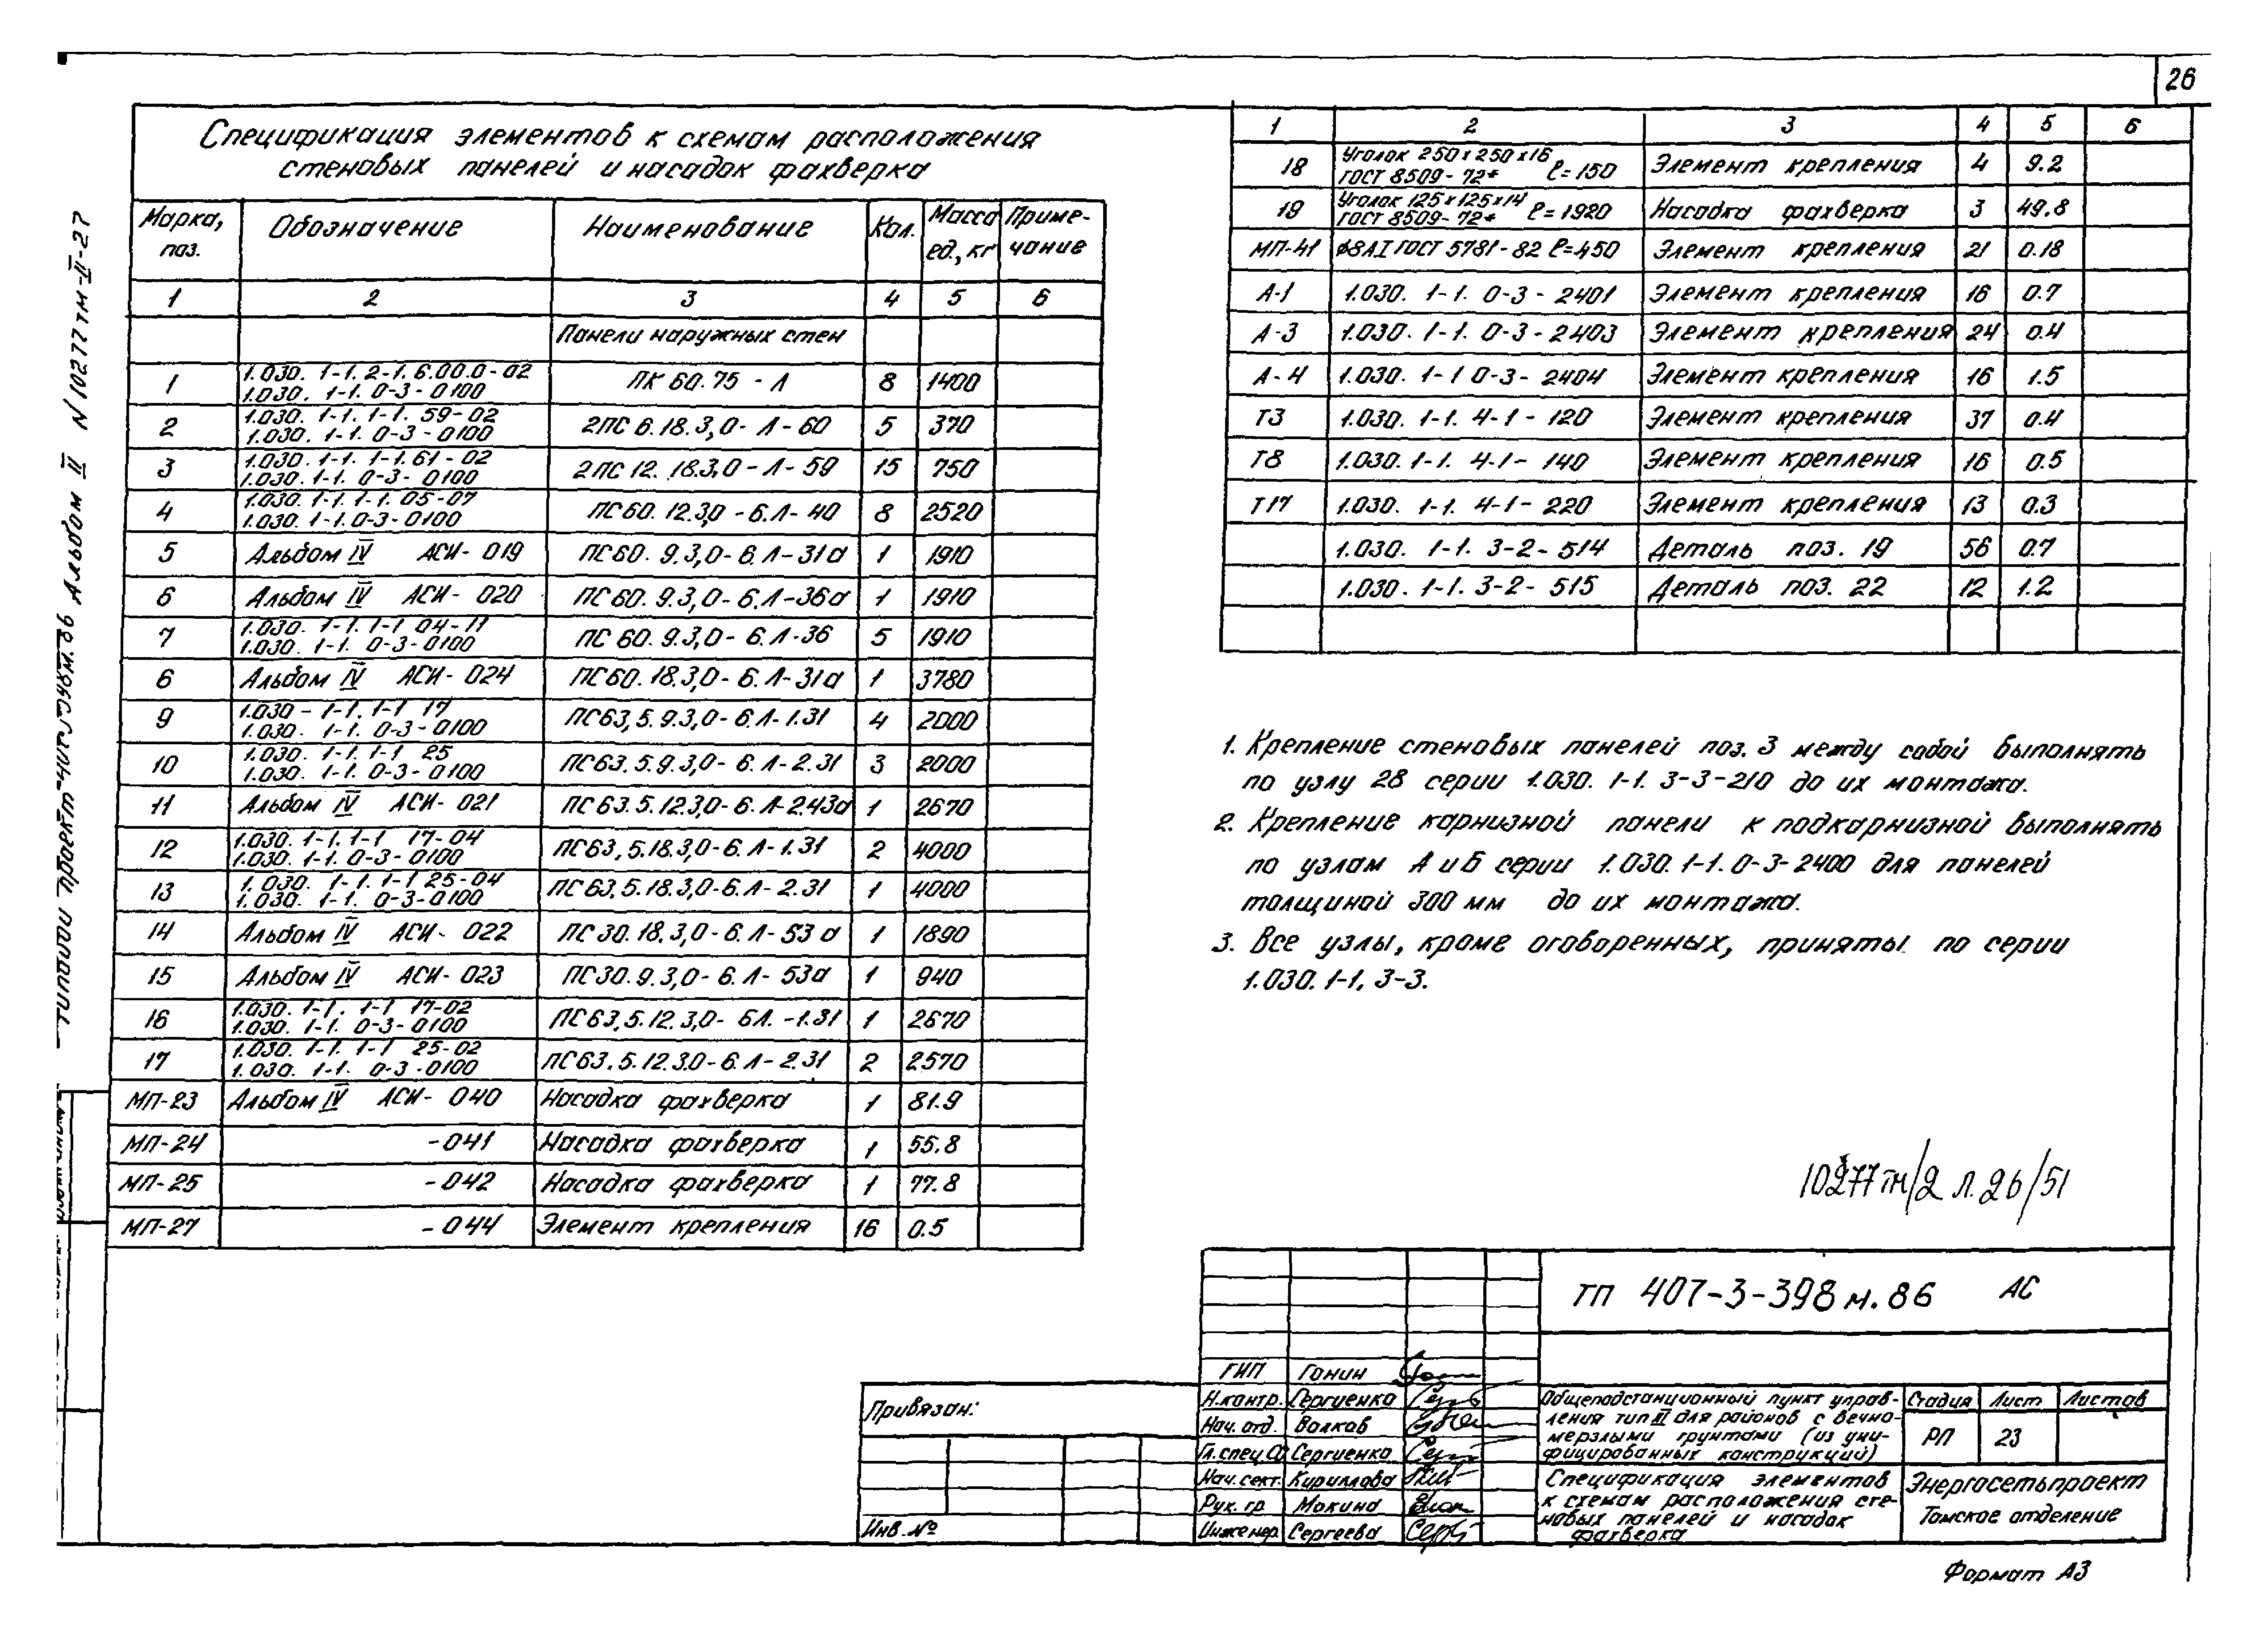 26
Спецификация элементов к схемам расположения
стеновых панелей и насадок фахверка
Марка, поз. Обозначение Наименование Кол. Масса ед., кг Приме-чание
1 2 3 4 5 6
Панели наружных стен
1 1.030. 1-1. 2-1. 6.00.0-02 ПК 60.75 - Л 8 1400
1.030. 1-1. 0-3-0100
2 1.030. 1-1. 1-1. 59-02 2ПС 6.18.3,0-Л-60 5 370
1.030. 1-1. 0-3-0100
3 1.030. 1-1. 1-1. 61-02 2ПС 12. 18.3,0-Л-59 15 750
1.030. 1-1. 0-3-0100
4 1.030. 1-1. 1-1. 05-07 ПС60. 12.3,0-6.Л-40 8 2520
1.030. 1-1. 0-3-0100
5 Альбом IV АСИ-019 ПС60. 9.3,0-6.Л-31а 1 1910
6 Альбом IV АСИ-020 ПС60. 9.3,0-6.Л-36а 1 1910
7 1.030. 1-1. 1-1 04-11 ПС 60. 9.3,0-6.Л-36 5 1910
1.030. 1-1. 0-3-0100
6 Альбом IV АСИ-024 ПС60. 18.3,0-6.Л-31а 1 3780
9 1.030-1-1. 1-1 17 ПС63,5.9.3,0-6.Л-1.31 4 2000
1.030. 1-1. 0-3-0100
10 1.030. 1-1. 1-1 25 ПС63.5.9.3,0-6.Л-2.31 3 2000
1.030. 1-1. 0-3-0100
11 Альбом IV АСИ-021 ПС63.5.12.3,0-6.Л-2.43а 1 2670
12 1.030. 1-1. 1-1 17-04 ПС63,5.18.3,0-6.Л-1.31 2 4000
1.030. 1-1. 0-3-0100
13 1.030. 1-1. 1-1 25-04 ПС63,5.18.3,0-6.Л-2.31 1 4000
1.030. 1-1. 0-3-0100
14 Альбом IV АСИ-022 ПС30.18.3,0-6.Л-53а 1 1890
15 Альбом IV АСИ-023 ПС30.9.3,0-6.Л-53а 1 940
16 1.030. 1-1. 1-1 17-02 ПС63,5.12.3,0-6Л.-1.31 1 2670
1.030. 1-1. 0-3-0100
17 1.030. 1-1. 1-1 25-02 ПС63.5.12.3.0-6.Л-2.31 2 2570
1.030. 1-1. 0-3-0100
МП-23 Альбом IV АСИ-040 Насадка фахверка 1 81.9
МП-24 -041 Насадка фахверка 1 55.8
МП-25 -042 Насадка фахверка 1 77.8
МП-27 -044 Элемент крепления 16 0.5
1 2 3 4 5 6
18 Уголок 250х250х16 ГОСТ 8509-72* ℓ=150 Элемент крепления 4 9.2
19 Уголок 125х125х14 ГОСТ 8509-72* ℓ=1920 Насадка фахверка 3 49.8
МП-41 ø8АI ГОСТ 5781-82 ℓ=450 Элемент крепления 21 0.18
А-1 1.030. 1-1. 0-3-2401 Элемент крепления 16 0.7
А-3 1.030. 1-1. 0-3-2403 Элемент крепления 24 0.4
А-4 1.030. 1-1 0-3-2404 Элемент крепления 16 1.5
Т3 1.030. 1-1. 4-1-120 Элемент крепления 37 0.4
Т8 1.030. 1-1. 4-1-140 Элемент крепления 16 0.5
Т17 1.030. 1-1. 4-1-220 Элемент крепления 13 0.3
1.030. 1-1. 3-2-514 Деталь поз. 19 56 0.7
1.030. 1-1. 3-2-515 Деталь поз. 22 12 1.2
1. Крепление стеновых панелей поз. 3 между собой выполнять
по узлу 28 серии 1.030. 1-1. 3-3-210 до их монтажа.
2. Крепление карнизной панели к подкарнизной выполнять
по узлам А и Б серии 1.030. 1-1. 0-3-2400 для панелей
толщиной 300 мм до их монтажа.
3. Все узлы, кроме оговоренных, приняты по серии
1.030. 1-1. 3-3.
10277тм/2 л.26/51
ТП 407-3-398м.86 АС
ГИП Гонин
Н.контр. Сергиенко
Нач. отд. Волков
Гл.спец. Сергиенко
Нач. сект. Кириллова
Рук. гр Мокина
Инженер Сергеева
Общеподстанционный пункт управ-
ления тип III для районов с вечно-
мерзлыми грунтами (из уни-
фицированных конструкций)
Стадия Лист Листов
РП 23
Спецификация элементов
к схемам расположения сте-
новых панелей и насадок
фахверка
Энергосетьпроект
Томское отделение
Привязан:
Инв. №
Формат А3
Типовой проект 407-3-398м.86 Альбом II N10277тм-II-27